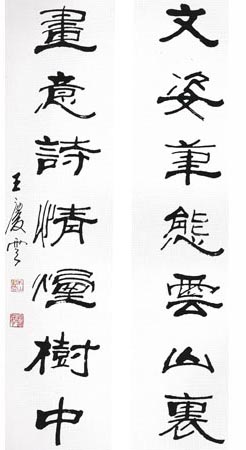 文姿筆態雲山裏
畫意詩情煙樹中
王慶雲